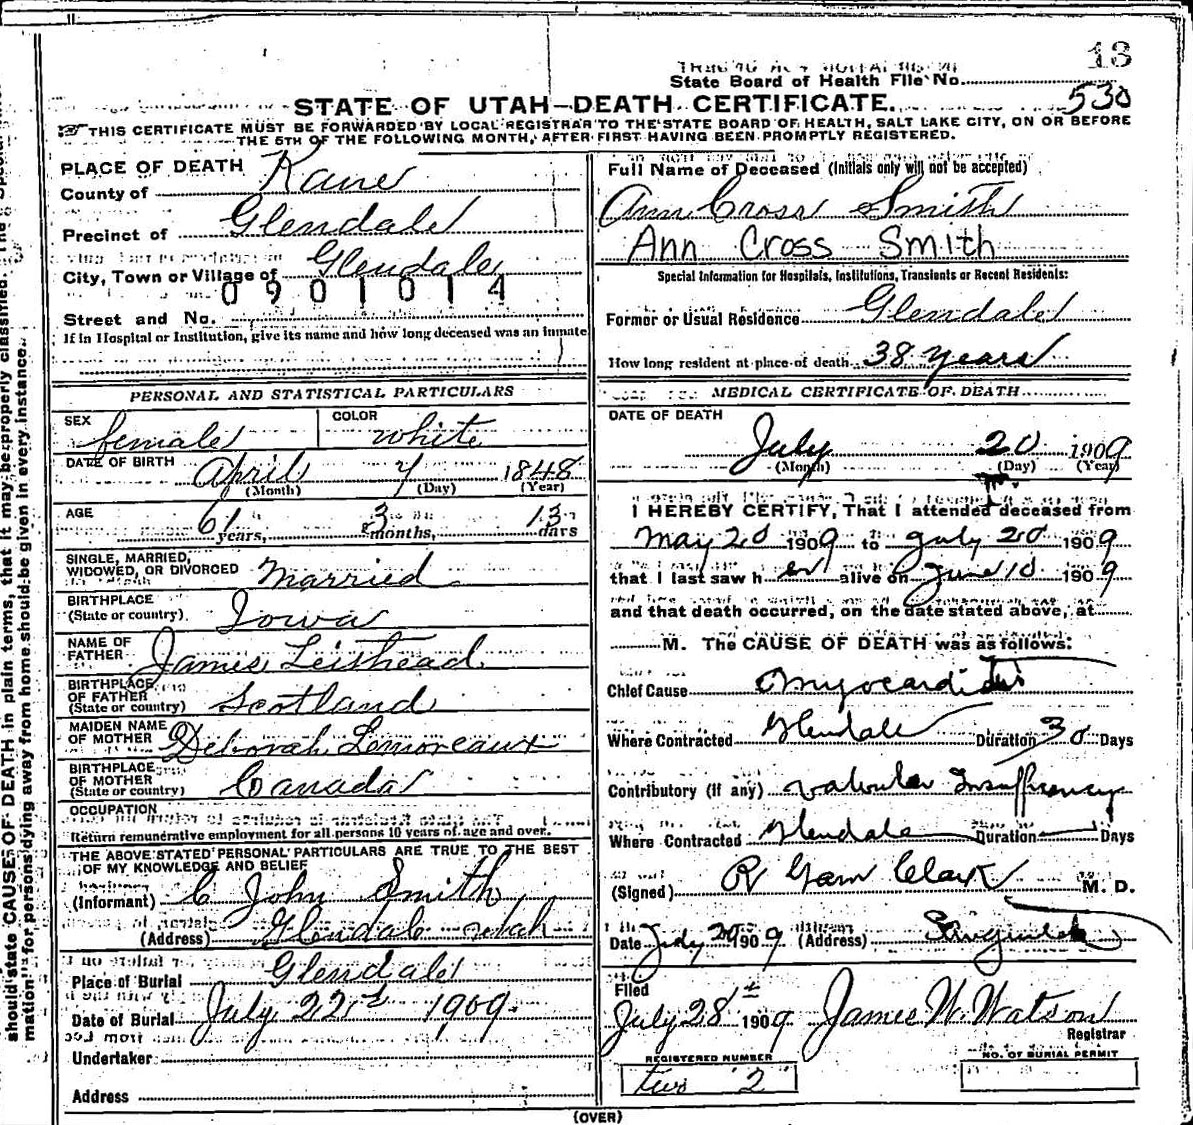 13
State Board of Health File No.
530
STATE OF UTAH—DEATH CERTIFICATE.
THIS CERTIFICATE MUST BE FORWARDED BY LOCAL REGISTRAR TO THE STATE BOARD OF HEALTH, SALT LAKE CITY, ON OR BEFORE
THE 5TH OF THE FOLLOWING MONTH, AFTER FIRST HAVING BEEN PROMPTLY REGISTERED.
PLACE OF DEATH
County of Kane
Precinct of Glendale
City, Town or Village of Glendale
0901014
Street and No.
If in Hospital or Institution, give its name and how long deceased was an inmate
PERSONAL AND STATISTICAL PARTICULARS
SEX female COLOR white
DATE OF BIRTH April 7 1848
(Month) (Day) (Year)
AGE 61 years, 3 months, 13 days
SINGLE, MARRIED,
WIDOWED, OR DIVORCED Married
BIRTHPLACE
(State or country) Iowa
NAME OF
FATHER James Leithead
BIRTHPLACE
OF FATHER
(State or country) Scotland
MAIDEN NAME
OF MOTHER Deborah Lemoreaux
BIRTHPLACE
OF MOTHER
(State or country) Canada
OCCUPATION
Return remunerative employment for all persons 10 years of age and over.
THE ABOVE STATED PERSONAL PARTICULARS ARE TRUE TO THE BEST
OF MY KNOWLEDGE AND BELIEF
(Informant) C John Smith
(Address) Glendale Utah
Place of Burial Glendale
Date of Burial July 22 1909.
Undertaker
Address
Full Name of Deceased (Initials only will not be accepted)
Ann Cross Smith
Ann Cross Smith
Special Information for Hospitals, Institutions, Transients or Recent Residents:
Former or Usual Residence Glendale
How long resident at place of death 38 years
MEDICAL CERTIFICATE OF DEATH
DATE OF DEATH
July 20 1909
(Month) (Day) (Year)
I HEREBY CERTIFY, That I attended deceased from
May 20 1909 to July 20 1909
that I last saw her alive on June 10 1909
and that death occurred, on the date stated above, at
M. The CAUSE OF DEATH was as follows:
Chief Cause Myocarditis
Where Contracted Glendale Duration 30 Days
Contributory (if any) valvular Insufficiency
Where Contracted Glendale Duration Days
(Signed) R Garn Clark M. D.
Date July 20 1909 (Address) Panguitch
Filed
July 28 1909 James W. Watson
Registrar
REGISTERED NUMBER
two 2
NO. OF BURIAL PERMIT
(OVER)
should state CAUSE OF DEATH in plain terms, that it may be properly classified.
mation for persons dying away from home should be given in every instance.